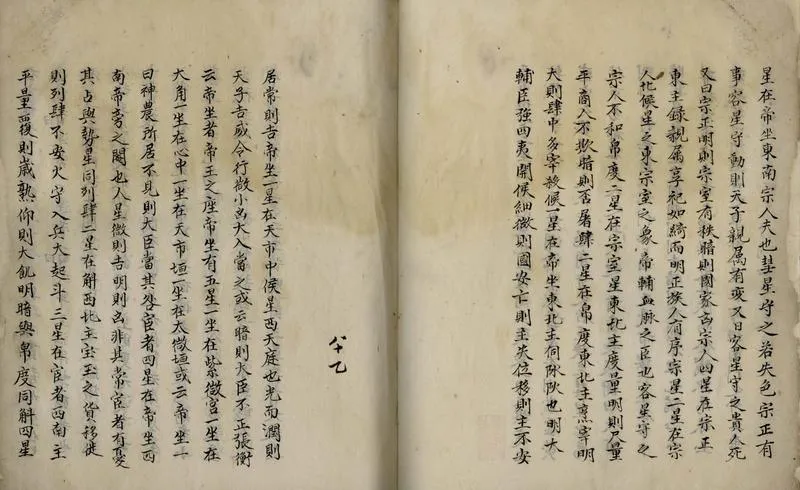 星在帝坐東南宗人夫也彗星守之若失色宗正有
事容星守動則天子親属有変又曰客星守之貴人死
又曰宗正明則宗室有秩暗則國家凶宗人四星在宗正
東主録親属享祀如綺而明正族人有序宗星二星在宗
人北候星之東宗室之象帝輔血脉之臣也客星守之
宗人不和帛度二星在宗室星東北主度量明則尺量
平商人不欺暗則否屠肆二星在帛度東北主烹宰明
大則肆中多宰殺候一星在帝坐東北主伺陰陽也明大
輔臣強四夷開候細微則國安亡則主失位移則主不安
八十乙
居常則吉帝坐一星在天市中候星西天庭也光而潤則
天子吉威令行微小凶大人當之或云暗則大臣不正張衡
云帝坐者帝王之座帝坐有五星一坐在紫微宮一坐在
大角一坐在心中一坐在天市垣一坐在太微垣或云帝坐一
曰神農所居不見則大臣當其咎宦者四星在帝坐西
南帝旁之閹也人星微則吉明則凶非其常宦者有憂
其占與勢星同列肆二星在斛西北主宝玉之貨移徙
則列肆不安火守入兵大起斗三星在宦者西南主
平量覆則歳熟仰則大飢明暗與帛度同斛四星